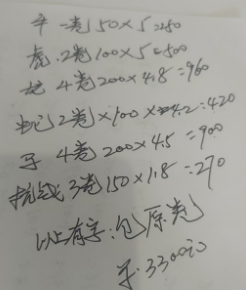 平一卷50×5=250
虎.2卷100×5=500
龙 4卷200×4.8=960
2卷×100×4.2=420
子 4卷200×4.5=900
3卷150×1.8=270
以上有字:包原卷
于:3300